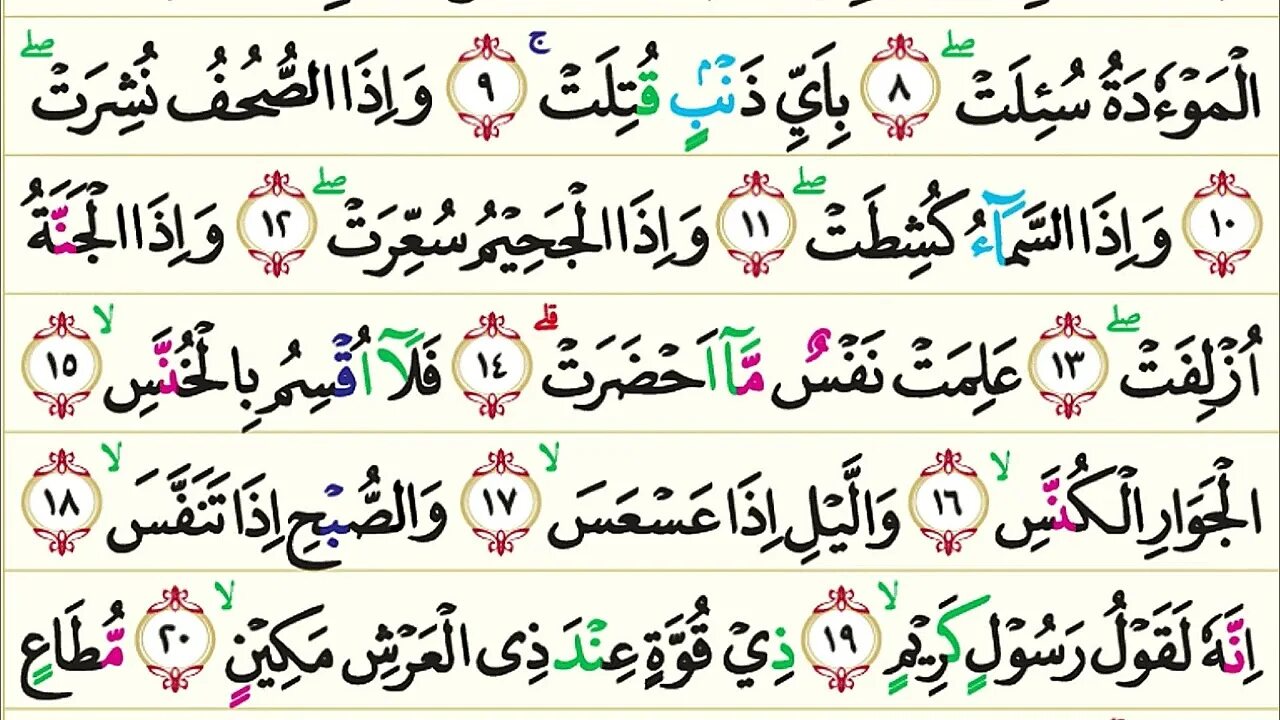 الْمَوْءٗدَةُ سُئِلَتْ ۖ ٨ بِاَيِّ ذَنْۢبٍ قُتِلَتْ ۚ ٩ وَاِذَا الصُّحُفُ نُشِرَتْ ۖ
١٠ وَاِذَا السَّمَاۤءُ كُشِطَتْ ۖ ١١ وَاِذَا الْجَحِيْمُ سُعِّرَتْ ۖ ١٢ وَاِذَا الْجَنَّةُ
اُزْلِفَتْ ۖ ١٣ عَلِمَتْ نَفْسٌ مَّآ اَحْضَرَتْ ۗ ١٤ فَلَآ اُقْسِمُ بِالْخُنَّسِ ۙ ١٥
الْجَوَارِ الْكُنَّسِ ۙ ١٦ وَالَّيْلِ اِذَا عَسْعَسَ ۙ ١٧ وَالصُّبْحِ اِذَا تَنَفَّسَ ۙ ١٨
اِنَّهٗ لَقَوْلُ رَسُوْلٍ كَرِيْمٍ ۙ ١٩ ذِيْ قُوَّةٍ عِنْدَ ذِى الْعَرْشِ مَكِيْنٍ ۙ ٢٠ مُّطَاعٍ